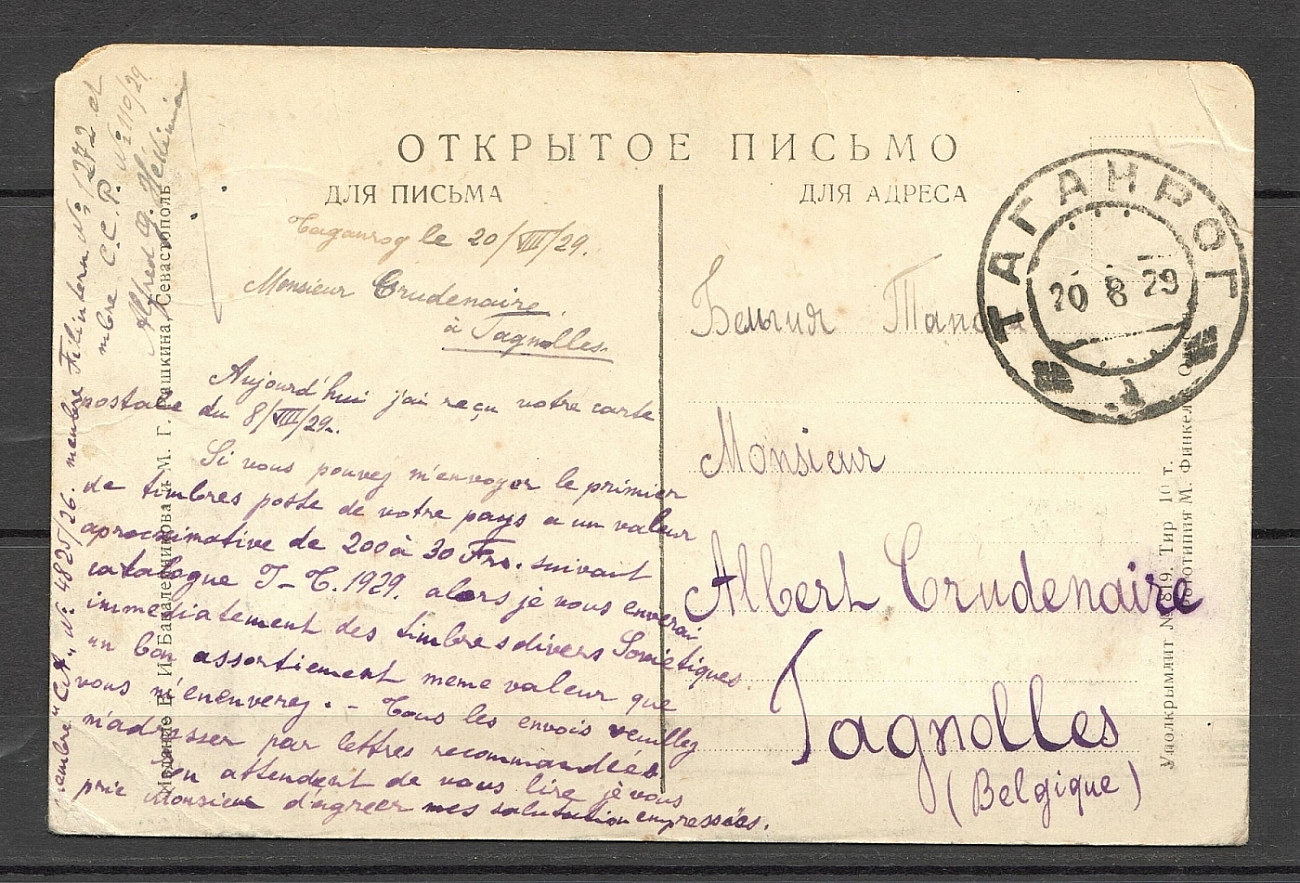 ОТКРЫТОЕ ПИСЬМО
ДЛЯ ПИСЬМА
ДЛЯ АДРЕСА
Taganrog le 20/VIII/29.
Monsieur Crudenaire
à Tagnolles.
Aujourd'hui j'ai reçu votre carte
postale du 8/VIII/29.
Si vous pouvez m'envoyer le primier
de timbres poste de votre pays a un valeur
aproximative de 200 à 30 Frs. suivant
catalogue T-C. 1929. alors je vous enverai
immediatement des timbres divers Soviétiques
un bon assortiement meme valeur que
vous m'enenverez. - Tous les envois veuillez
m'adresser par lettres recommandées
En attendent de vous lire je vous
prie Monsieur d'agreer mes salutation empressées.
membre "CA" № 4825/26. membre Filintern № 1272 et
mbre C.C.P. № 1110/29
Alfred
М. Г. Рашкина, Севастополь
ТАГАНРОГ
20 8 29
Бельгия
Monsieur
Albert Crudenaire
Tagnolles
(Belgique)
Уполкрымлит № 819. Тир 10 т.
М. Финкел